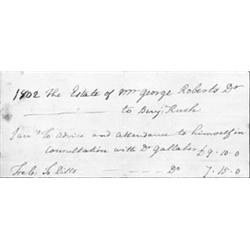 1802 The Estate of Mr George Roberts Dr
to Benj: Rush
Jany To advice and attendance to himself in
consultation with Dr Gallaher £9.10.0
Feb: To Ditto Do 7.15.0